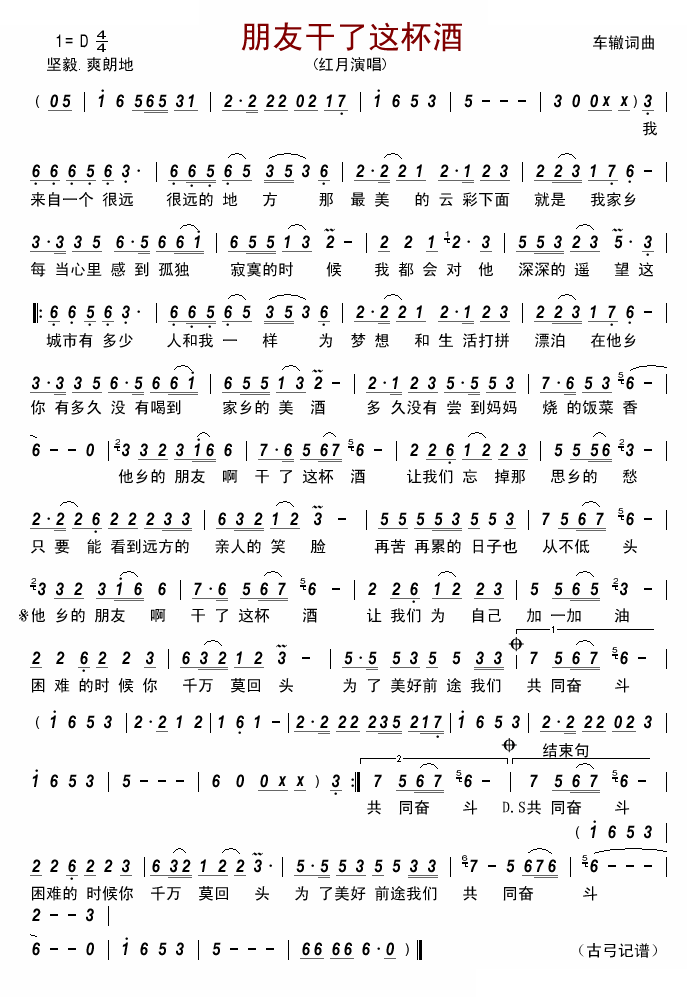 朋友干了这杯酒
1= D 4/4
车辙词曲
坚毅.爽朗地
(红月演唱)
( 05 | 1 6 565 31 | 2·2 22 02 17 | 1 6 5 3 | 5 - - - | 3 0 0x x ) 3 |
我
6 6 6 5 6 3· | 6 6 5 6 5 3 5 3 6 | 2·2 2 1 2·1 2 3 | 2 2 3 1 7 6 - |
来自一个 很远 很远的 地 方 那 最 美 的 云 彩下面 就是 我家乡
3·3 3 5 6·5 6 6 1 | 6 5 5 1 3 2 - | 2 2 1 12· 3 | 5 5 3 2 3 5· 3 |
每 当心里 感 到 孤独 寂寞的时 候 我 都 会 对 他 深深的遥 望 这
6 6 5 6 3· | 6 6 5 6 5 3 5 3 6 | 2·2 2 1 2·1 2 3 | 2 2 3 1 7 6 - |
城市有 多少 人和我 一 样 为 梦 想 和 生 活打拼 漂泊 在他乡
3·3 3 5 6·5 6 6 1 | 6 5 5 1 3 2 - | 2·1 2 3 5·5 5 3 | 7·6 5 3 56 - |
你 有多久 没 有喝到 家乡的 美 酒 多 久没有 尝 到妈妈 烧 的饭菜 香
6 - - 0 | 23 3 2 3 1 6 6 | 7·6 5 6 7 56 - | 2 2 6 1 2 2 3 | 5 5 5 6 23 - |
他乡的 朋友 啊 干 了 这杯 酒 让我们 忘 掉那 思乡的 愁
2·2 2 6 2 2 2 3 3 | 6 3 2 1 2 3 - | 5 5 5 5 3 5 5 5 | 7 5 6 7 56 - |
只 要 能 看到远方的 亲人的 笑 脸 再苦 再累的 日子也 从不低 头
23 3 2 3 1 6 6 | 7·6 5 6 7 56 - | 2 2 6 1 2 2 3 | 5 5 6 5 23 - |
他 乡的 朋友 啊 干 了 这杯 酒 让 我们 为 自己 加 一加 油
1
2 2 6 2 2 3 | 6 3 2 1 2 3 - | 5·5 5 3 5 5 3 3 | 7 5 6 7 56 - |
困 难 的时 候 你 千万 莫回 头 为 了 美好前 途 我们 共 同奋 斗
( 1 6 5 3 | 2·2 1 2 | 1 6 1 - | 2·2 22 235 217 | 1 6 5 3 | 2·2 22 02 3 |
2 结束句
1 6 5 3 | 5 - - - | 6 0 0x x ) 3 :| 7 5 6 7 56 - | 7 5 6 7 56 - |
共 同奋 斗 D.S共 同奋 斗
( 1 6 5 3 |
2 2 6 2 2 3 | 6 32 1 2 2 3· | 5·5 5 3 5 5 3 3 | 67 - 5 676 | 56 - - - |
困难的 时候你 千万 莫回 头 为 了美好 前途我们 共 同奋 斗
2 - - 3 |
6 - - 0 | 1 6 5 3 | 5 - - - | 66 66 6·0 )
(古弓记谱)